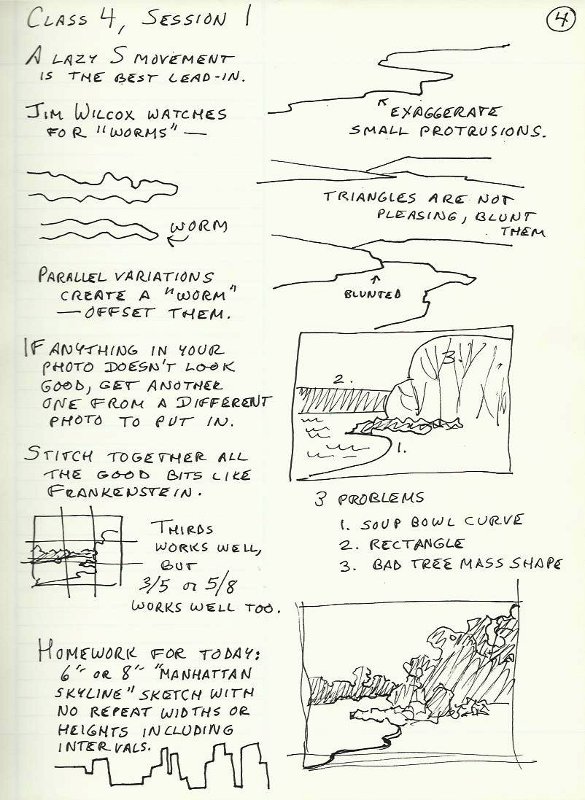 CLASS 4, SESSION 1
4
A LAZY S MOVEMENT
IS THE BEST LEAD-IN.
JIM WILCOX WATCHES
FOR "WORMS" —
WORM
PARALLEL VARIATIONS
CREATE A "WORM"
— OFFSET THEM.
IF ANYTHING IN YOUR
PHOTO DOESN'T LOOK
GOOD, GET ANOTHER
ONE FROM A DIFFERENT
PHOTO TO PUT IN.
STITCH TOGETHER ALL
THE GOOD BITS LIKE
FRANKENSTEIN.
THIRDS
WORKS WELL,
BUT
3/5 OR 5/8
WORKS WELL TOO.
HOMEWORK FOR TODAY:
6" OR 8" "MANHATTAN
SKYLINE" SKETCH WITH
NO REPEAT WIDTHS OR
HEIGHTS INCLUDING
INTERVALS.
EXAGGERATE
SMALL PROTRUSIONS.
TRIANGLES ARE NOT
PLEASING, BLUNT
THEM
BLUNTED
3.
2.
1.
3 PROBLEMS
1. SOUP BOWL CURVE
2. RECTANGLE
3. BAD TREE MASS SHAPE